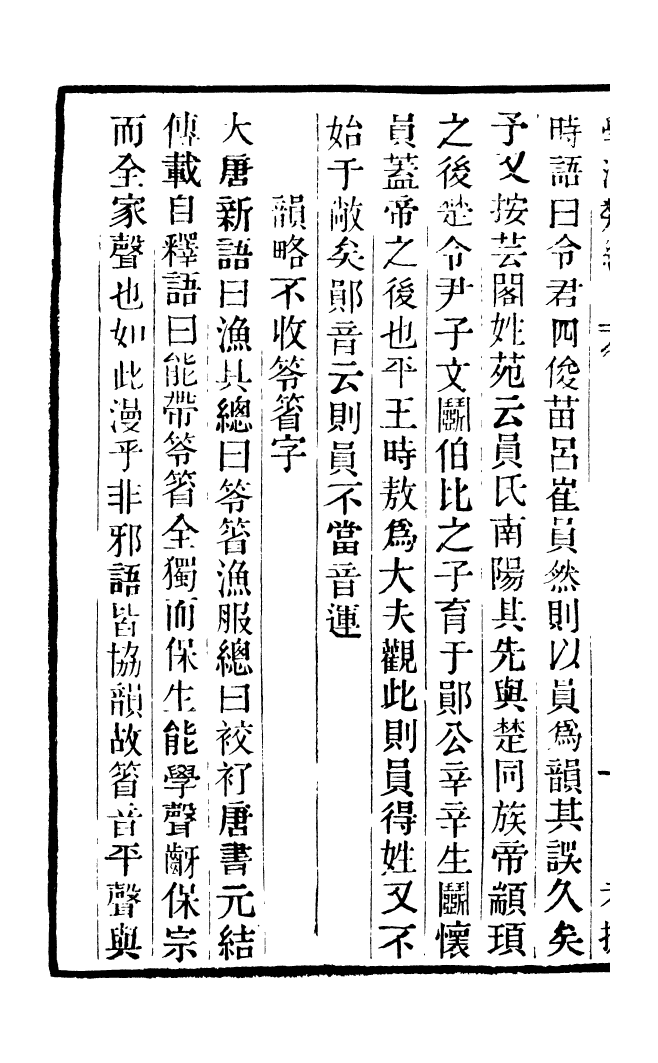 時語曰令君四俊苗呂崔員然則以員爲韻其誤久矣
予又按芸閣姓苑云員氏南陽其先與楚同族帝顓頊
之後楚令尹子文鬭伯比之子育于鄖公辛辛生鬭懷
員蓋帝之後也平王時敖爲大夫觀此則員得姓又不
始于敵矣鄖音云則員不當音運
韻略不收笭箵字
大唐新語曰漁具總曰笭箵漁服總曰衱衧唐書元結
傳載自釋語曰能帶笭箵全獨而保生能學聲齖保宗
而全家聲也如此漫乎非邪語皆協韻故箵音平聲與